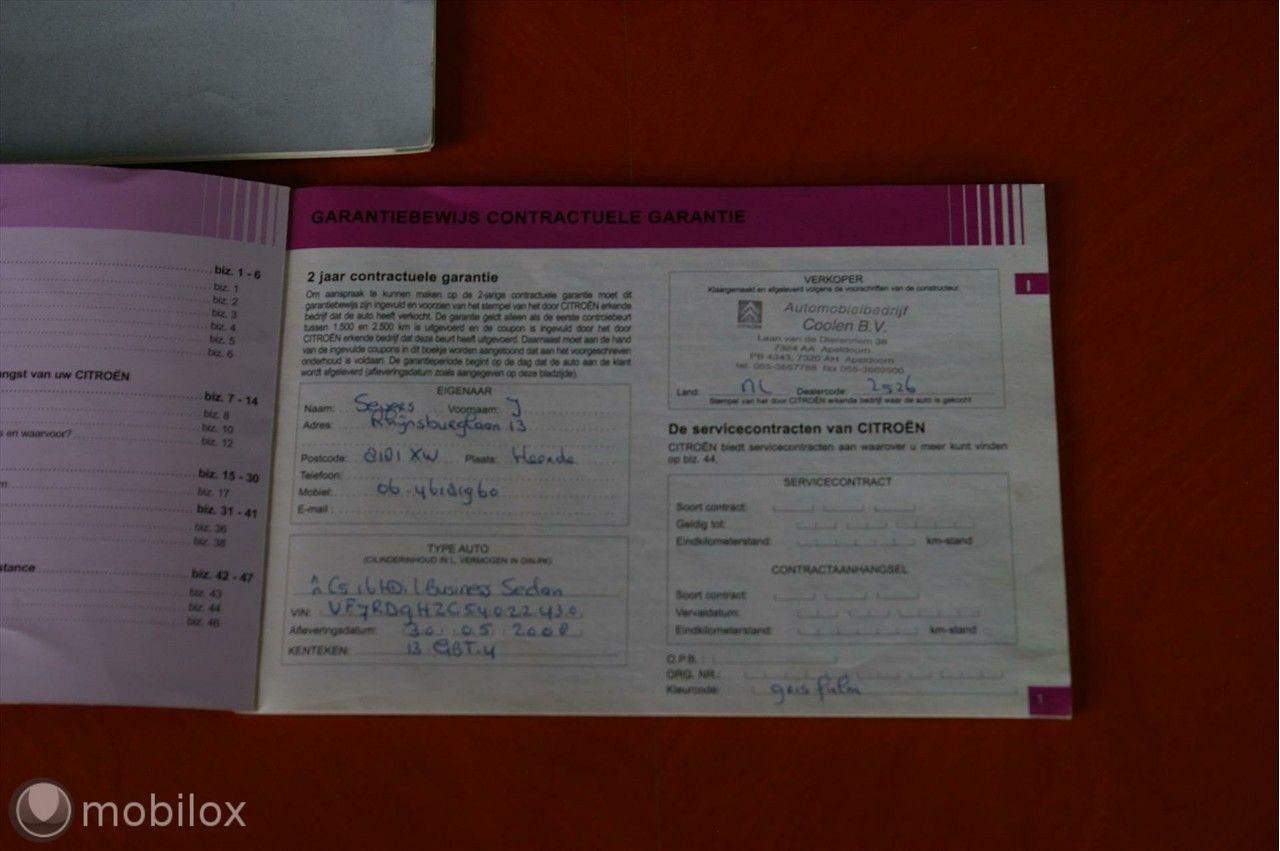 biz. 1 - 6
biz. 1
biz. 2
biz. 3
biz. 4
biz. 5
biz. 6
ngst van uw CITROËN
biz. 7 - 14
biz. 8
s en waarvoor?
biz. 10
biz. 12
biz. 15 - 30
biz. 17
biz. 31 - 41
biz. 36
biz. 38
stance
biz. 42 - 47
biz. 43
biz. 44
biz. 46
GARANTIEBEWIJS CONTRACTUELE GARANTIE
2 jaar contractuele garantie
Om aanspraak te kunnen maken op de 2-jarige contractuele garantie moet dit
garantiebewijs zijn ingevuld en voorzien van het stempel van het door CITROËN erkende
bedrijf dat de auto heeft verkocht. De garantie geldt alleen als de eerste controlebeurt
tussen 1.500 en 2.500 km is uitgevoerd en de coupon is ingevuld door het door
CITROËN erkende bedrijf dat deze beurt heeft uitgevoerd. Daarnaast moet aan de hand
van de ingevulde coupons in dit boekje worden aangetoond dat aan het voorgeschreven
onderhoud is voldaan. De garantieperiode begint op de dag dat de auto aan de klant
wordt afgeleverd (afleveringsdatum zoals aangegeven op deze bladzijde).
EIGENAAR
Naam: Voornaam: J
Adres: Rhijnsburglaan 13
Postcode: 8181 XW Plaats: Heerde
Telefoon:
Mobiel:
E-mail :
TYPE AUTO
(CILINDERINHOUD IN L, VERMOGEN IN DIN-PK)
C5 1.6 HDi Business Sedan
VIN: VF7RD9HZC54022430
Afleveringsdatum: 30 05 2008
KENTEKEN: 13-GBT-4
VERKOPER
Klaargemaakt en afgeleverd volgens de voorschriften van de constructeur.
CITROËN
Automobielbedrijf
Coolen B.V.
Laan van de Dierenriem 38
7324 AA Apeldoorn
PB 4343, 7320 AH Apeldoorn
tel. 055-3667788 fax 055-3669500
Land: NL Dealercode: 2526
Stempel van het door CITROËN erkende bedrijf waar de auto is gekocht
De servicecontracten van CITROËN
CITROËN biedt servicecontracten aan waarover u meer kunt vinden
op blz. 44.
SERVICECONTRACT
Soort contract:
Geldig tot:
Eindkilometerstand: km-stand
CONTRACTAANHANGSEL
Soort contract:
Vervaldatum:
Eindkilometerstand: km-stand
O.P.B.
ORG. NR.:
Kleurcode: gris
I
1
mobilox